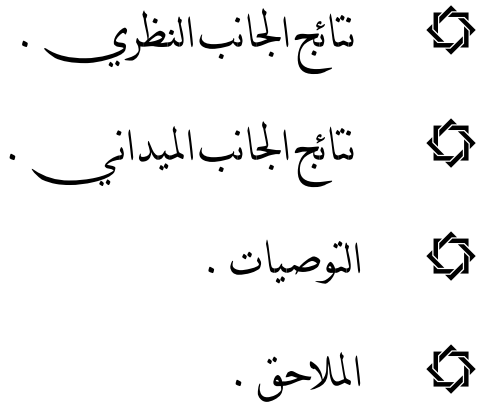 نتائج الجانب النظري .
نتائج الجانب الميداني .
التوصيات .
الملاحق .